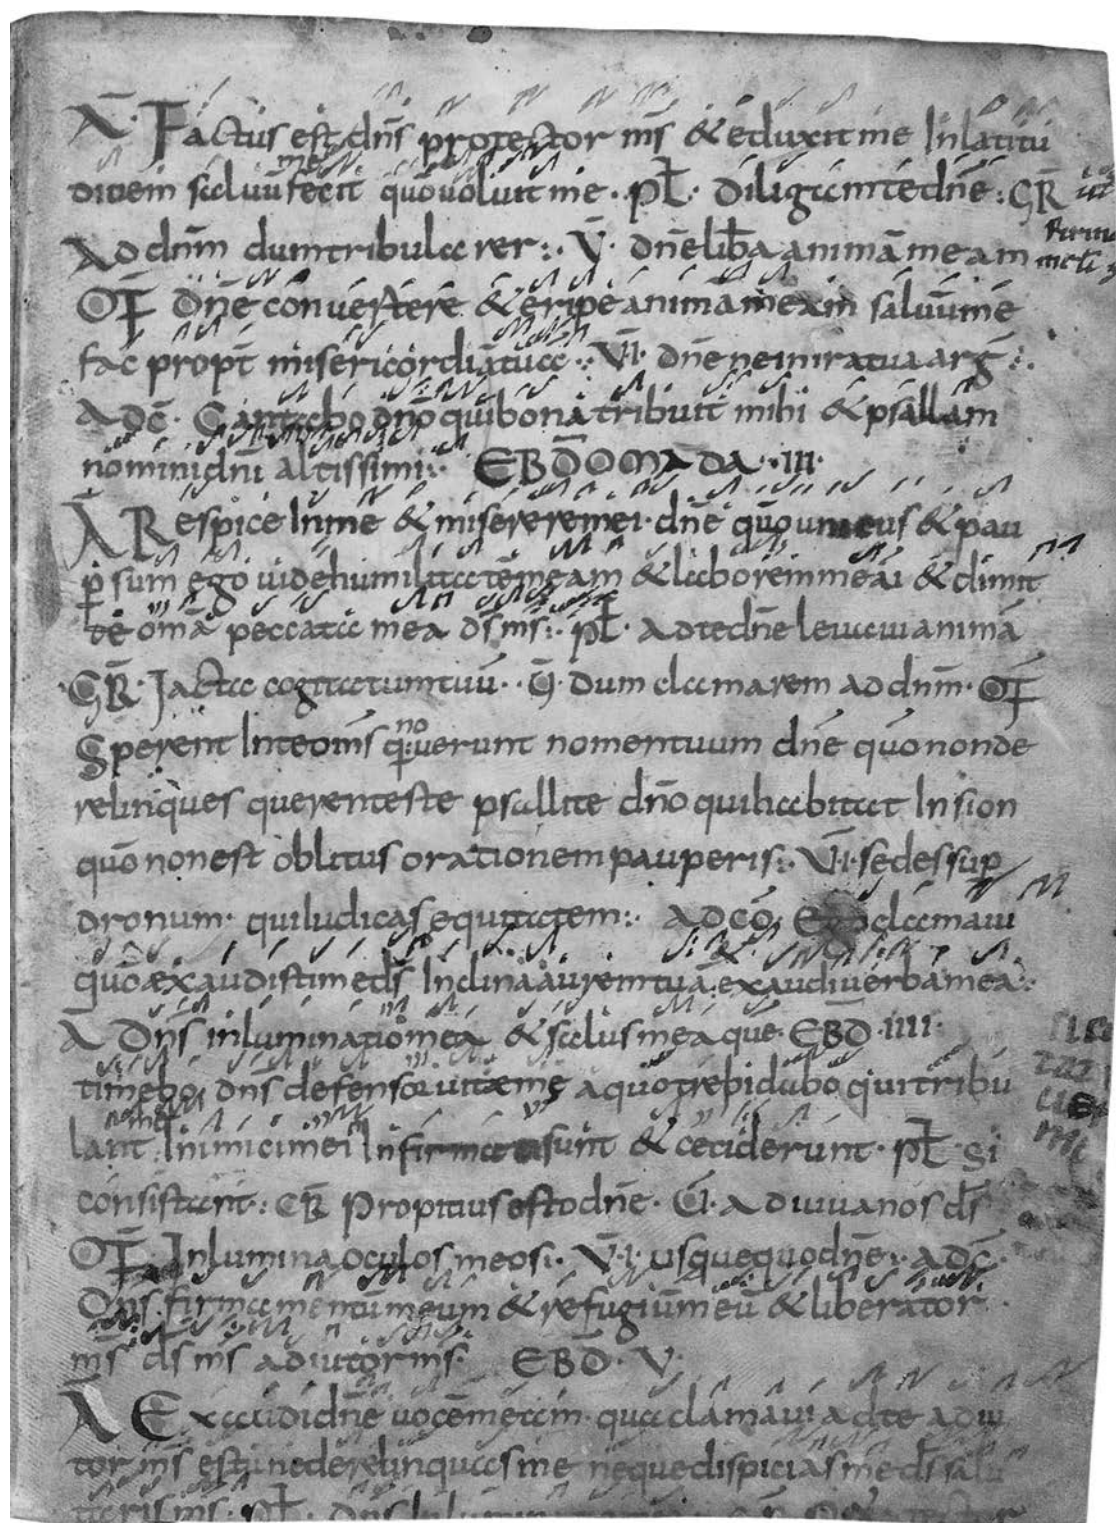 A. Factus est dn̄s protector m̄s & eduxit me In latitu
dinem saluū me fecit quō uoluit me. pŁ. diligam te dn̄e: GR̄
Ad dn̄m dum tribularer:. V̄. dn̄e lib̄a animā meam
OF̄ dn̄e convertere & eripe animā meam saluū me
fac propt̄ misericordiā tua:. V̄.I. dn̄e ne in ira tua arḡ:.
AD C̄. Cantabo dn̄o qui bona tribuit mihi & psallam
nomini dn̄i altissimi:. EBD̄OMADA .III.
Ā Respice In me & miserere mei. dn̄e quō unicus & pau
p̄ sum ego uide humilitatē meam & laborem meū & dimit
te om̄a peccata mea d̄s m̄s:. pŁ. Ad te dn̄e leuaui animā
GR̄. Iacta cogitatum tuū. V̄. dum clamarem ad dn̄m. OF̄
Sperent In te om̄s qui no uerunt nomen tuum dn̄e quō non de
relinques querentes te psallite dn̄o qui habitat In sion
quō non est oblitus orationem pauperis:. V̄.I. sedes sup̄
dronum. qui Iudicas equitatem:. AD CŌ. Ego clamaui
quō exaudisti me d̄s Inclina aurem tuā & exaudi uerba mea:.
Ā Dn̄s inluminatio mea & salus mea que EBD̄ .IIII.
timebo dn̄s defensor uitae me a quo trepidabo qui tribu
lant me Inimici mei Infirmati sunt & ceciderunt. pŁ. Si
consistant: GR̄ Propitius esto dn̄e. V̄. Adiuua nos d̄s
OF̄. Inlumina oculos meos:. V̄.I. usquequo dn̄e:. AD C̄.
Dn̄s firmamentū meum & refugiū meū & liberator
m̄s d̄s m̄s adiutor m̄s. EBD̄. V.
Ā Exaudi dn̄e uocē meam. qua clamaui ad te adiu
tor m̄s esto ne derelinquas me neque dispicias me d̄s salu
taris m̄s. pŁ. dn̄s Inlumin